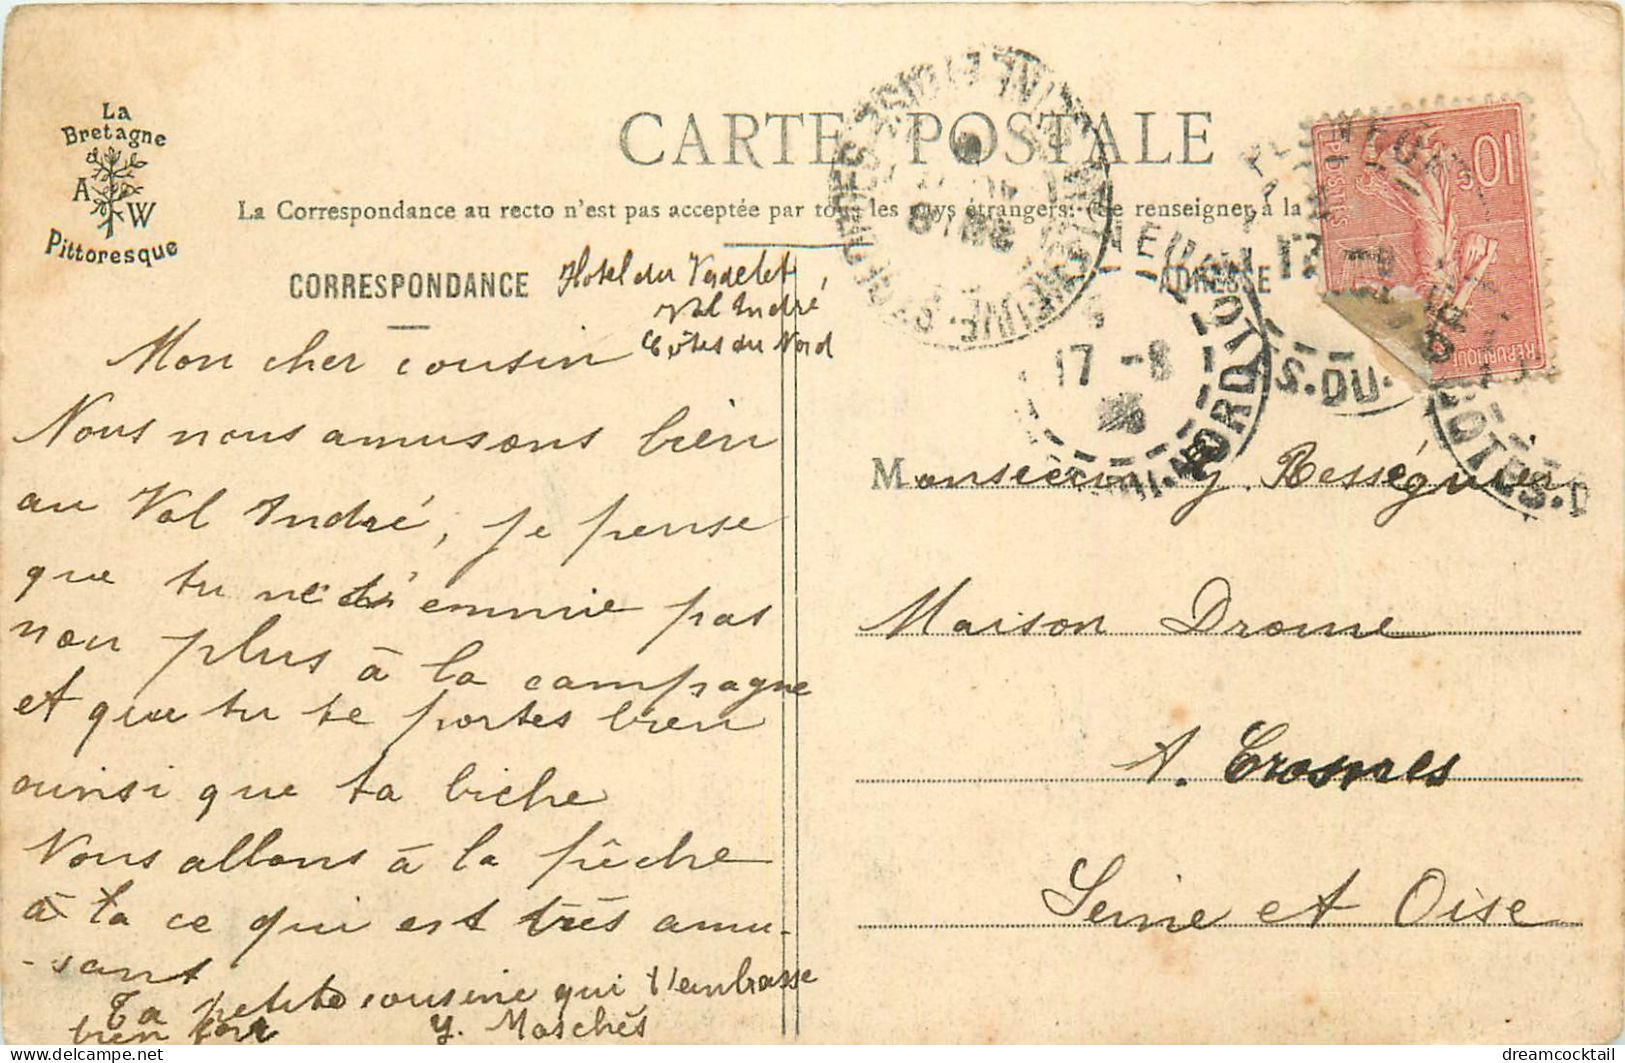 La
Bretagne
A W
Pittoresque
CARTE POSTALE
La Correspondance au recto n'est pas acceptée par tous les pays étrangers. (Se renseigner à la
CORRESPONDANCE
ADRESSE
Hotel du Verdelet
Val André
Côtes du Nord
Mon cher cousin
Nous nous amusons bien
au Val André, je pense
que tu ne t'ennuie pas
non plus à la campagne
et que tu te portes bien
ainsi que ta biche
Nous allons à la pêche
à la ce qui est très amu-
-sant
Ta petite cousine qui t'embrasse
bien fort
Y. Maschés
Monsieur J. Rességuier
Maison Drome
A. Crosnes
Seine et Oise
10c
Postes
REPUBLIQUE
17 -8
S.DU.
COTES-D
dreamcocktail